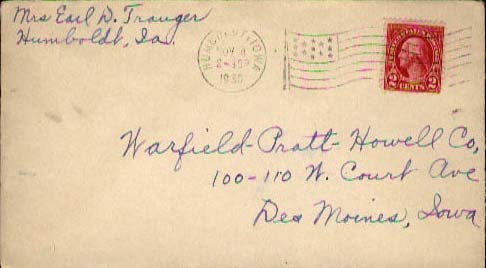 Mrs Earl D. Trauger
Humboldt, Ia.
HUMBOLDT, IOWA
2
2
CENTS
Warfield-Pratt-Howell Co,
100-110 W. Court Ave
Des Moines, Iowa